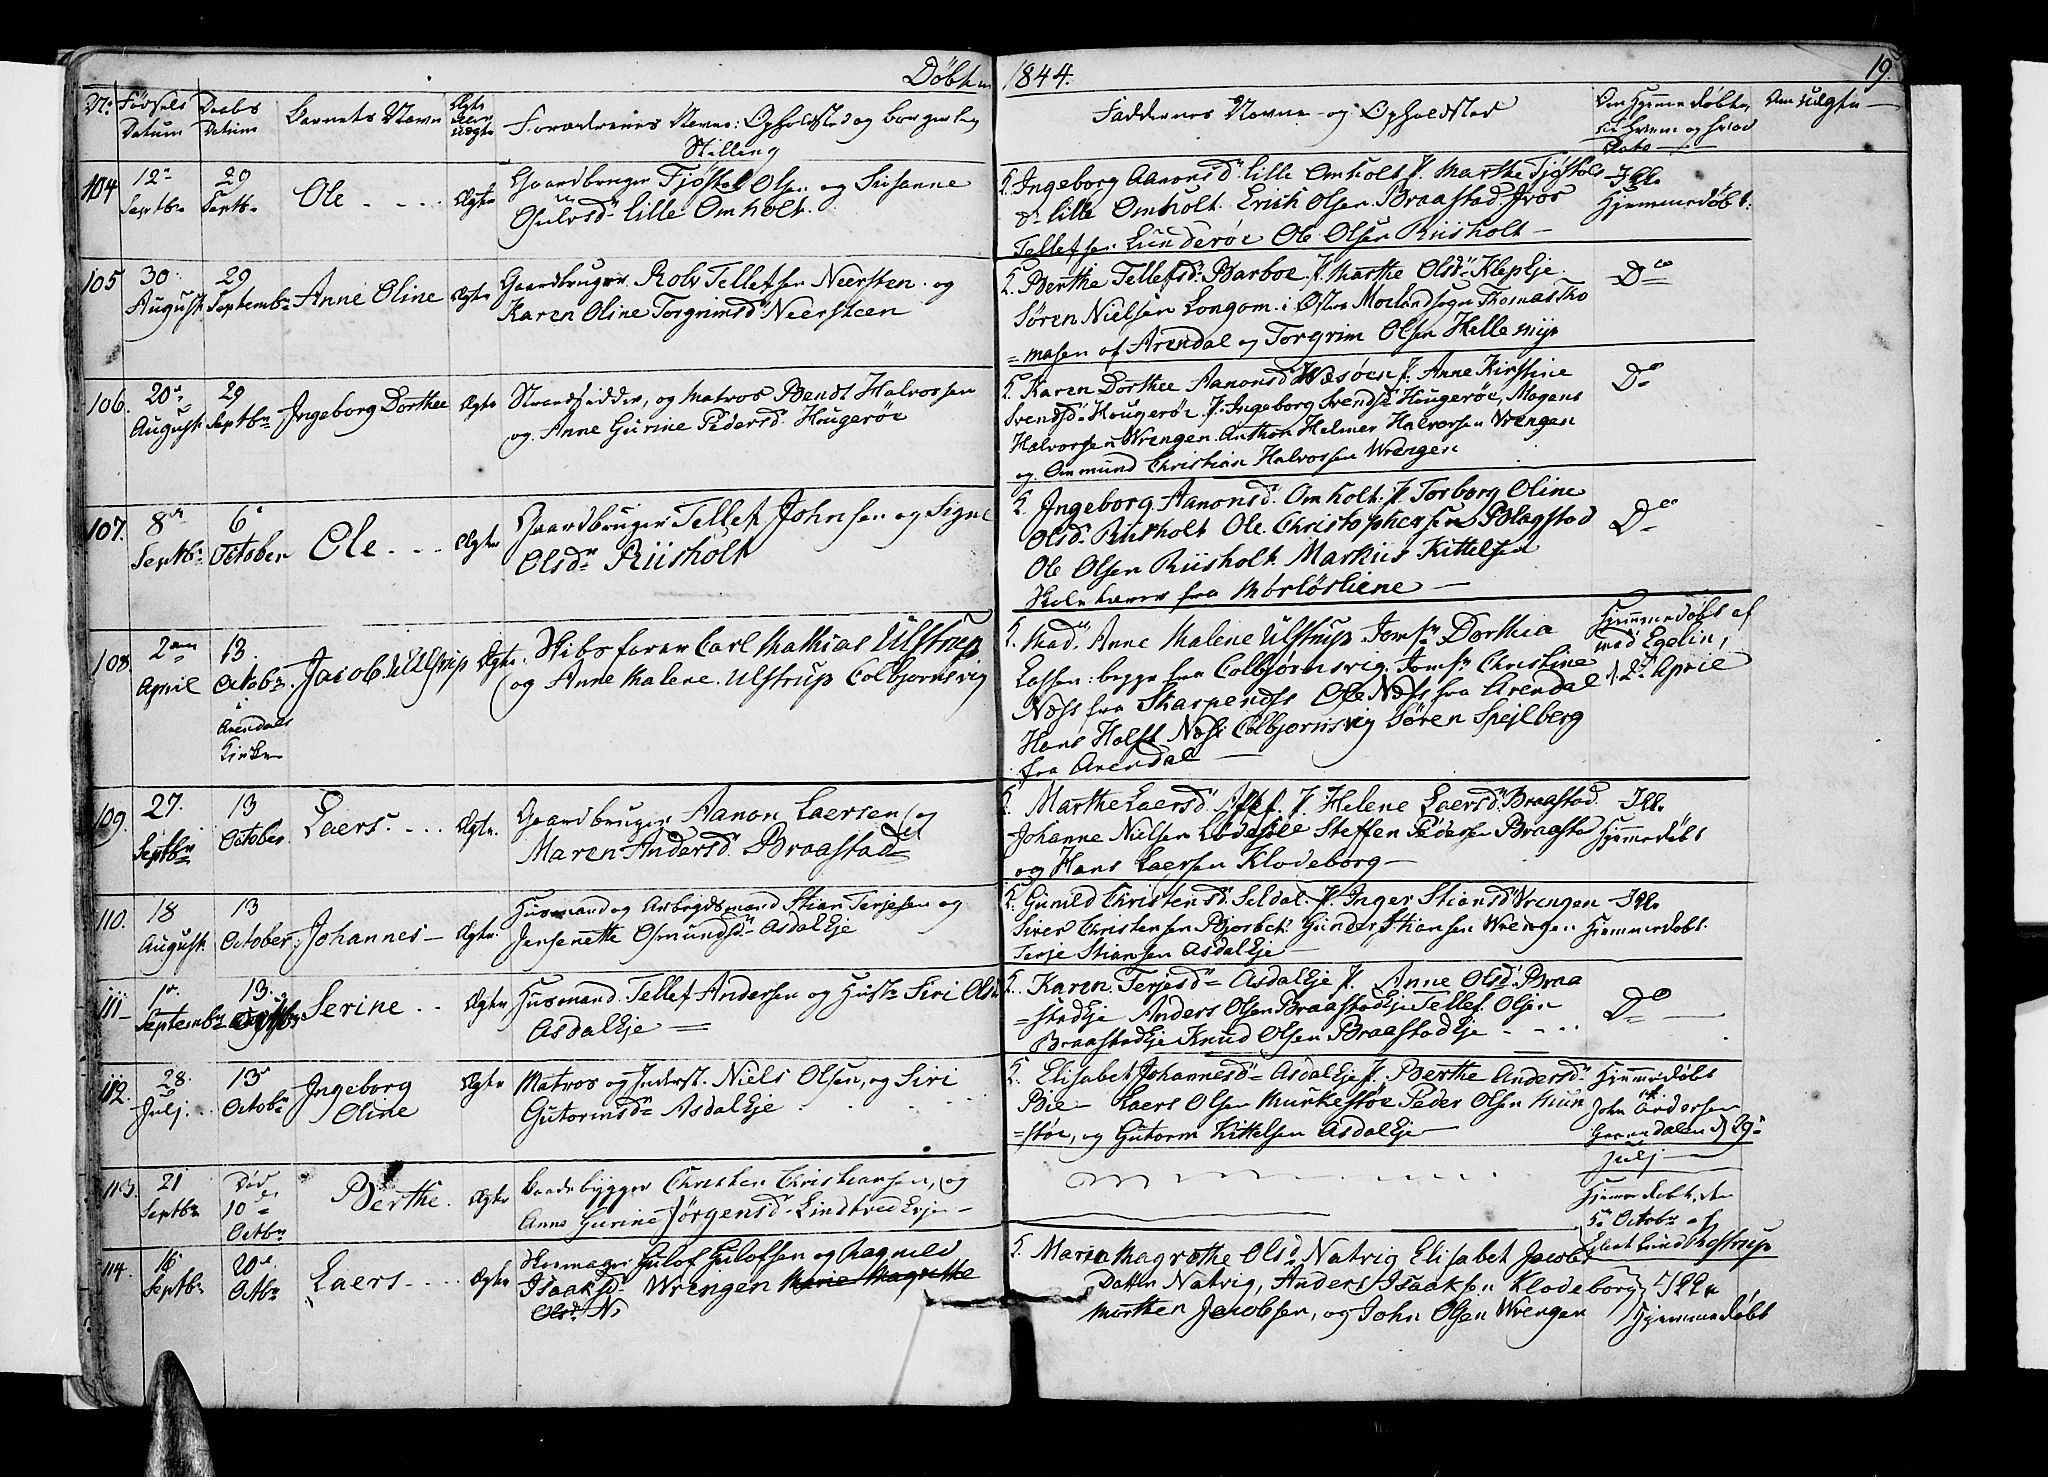 Døbte 1844. 19
No Fødsels Datum Daabs Datum Barnets Navn Ægte eller uægte Forældrenes Navne: Opholdsted og borgerlig Stilling
Faddernes Navne og Opholdsted Om Hjemmedøbte, Om uægte
104 12te Septbr 29 Septbr Ole Ægte
Gaardbruger Tjøstel Olsen og Susanne
Lille Omholt.
Ingeborg Aanonsd. Lille Omholt P. Marthe Tjøstels
d. Lille Omholt. Erich Olsen Braastad.
Tellefsen Ole Olsen Riisholt
Ikke Hjemmedøbt.
105 30 August 29 Septembr Anne Oline Ægte
Gaardbruger Rolv Tellefsen Neersteen og
Karen Oline Torgrimsd. Neersteen
Berthe Tellefsd. Barboe P. Marthe Olsd. Klep Eje
Søren Nielsen Longom i Østre Molandsogn Thomas Tho
=masen af Arendal og Torgrim Olsen Hellemyr
Do
106. 20de August 29 Septbr Ingeborg Dorthee Ægte
Strandsidder, og Matros Bendt Halvorsen
og Anne Gurine Pedersd. Hougerøe
Karen Dorthee Aanonsd. P. Anne Kirstine
Svendsd. Hougerøe P. Ingeborg Svendsd. Hougerøe, Mogens
Halvorsen Wrengen Anthon Helmer Halvorsen Wrengen
og Ommund Christian Halvorsen Wrengen
Do
107. 8de Septbr 6te October Ole Ægte
Gaardbruger Tellef Johnsen og Signe
Olsd. Riisholt
Ingeborg Aanonsd. Omholt P. Torborg Oline
Olsd. Riisholt Ole Christophersen Blagstad
Ole Olsen Riisholt Markus Kittelsen
Skolelærer fra
Do
108. 2den April 13 Octobr i Arendals Kirke Jacob Ulstrup Ægte
Skibsfører Carl Mathias Ulstrup
og Anne Malene Ulstrup Colbjørnsvig
Mad. Anne Malene Ulstrup Jomfr. Dorthea
Lassen begge fra Colbjørnsvig Jomfr. Christine
Næss fra Skarpenæss Ole Næss fra Arendal
Hans Holst Næss Colbjørnsvig Søren Spejlberg
fra Arendal
Hjemmedøbt af
mad Egelin,
d. 2den April
109. 27 Septbr 13 October Laers Ægte
Gaardbruger Aanon Laersen og
Maren Andersd. Braastad
Marthe Laersd. P. Helene Laersd. Braastad
Johanne Nielsen Steffen Pedersen Braastad
og Hans Laersen Klodeborg
Ikke Hjemmedøbt
110. 18 August 13 October Johannes Ægte
Husmand og Arbejdsmand Stian Terjesen og
Jensenette Osmundsd. Asdal Eje
Gunild Christensd. Seldal P. Inger Stiansd. Wrengen
Siver Christensen Gunder Stiansen Wrengen
Terje Stiansen Asdal Eje
Ikke Hjemmedøbt.
111 1te September 13 Serine Ægte
Husmand Tellef Andersen og Hustr. Siri Olsd.
Asdal Eje
Karen Terjesd. Asdal Eje P. Anne Olsd. Braa
=stad Eje Anders Olsen Braastad Eje Tellef Olsen
Braastad Eje Knud Olsen Braastad Eje
Do
112. 28 Julj 13 Octobr Ingeborg Oline Ægte
Matros og Inderst. Niels Olsen, og Siri
Gutormsd. Asdal Eje
Elisabet Johannesd. Asdal Eje P. Berthe Andersd.
Bie Laers Olsen Peder Olsen
=støe, og Gutorm Kittelsen Asdal Eje
Hjemmedøbt af
John Andersen
d. 29
Julj
113. 21 Septbr Død 10de Octbr Berthe. Ægte
Baadebygger Christen Christiansen, og
Anne Gurine Jørgensd. Lindtved Eje
Hjemmedøbt, den
5te Octobr af
114. 16 Septbr 20de Octbr Laers Ægte
Skomager Gulof Gulofsen og Magnild
Isaaksd. Wrengen Marie Magrethe
Olsd. N
Maren Magrethe Olsd. Natvig Elisabet Jacobs
Datter Natvig, Anders Isaaksen Klodeborg
Morthen Jacobsen, og John Olsen Wrengen
Ikke
Hjemmedøbt